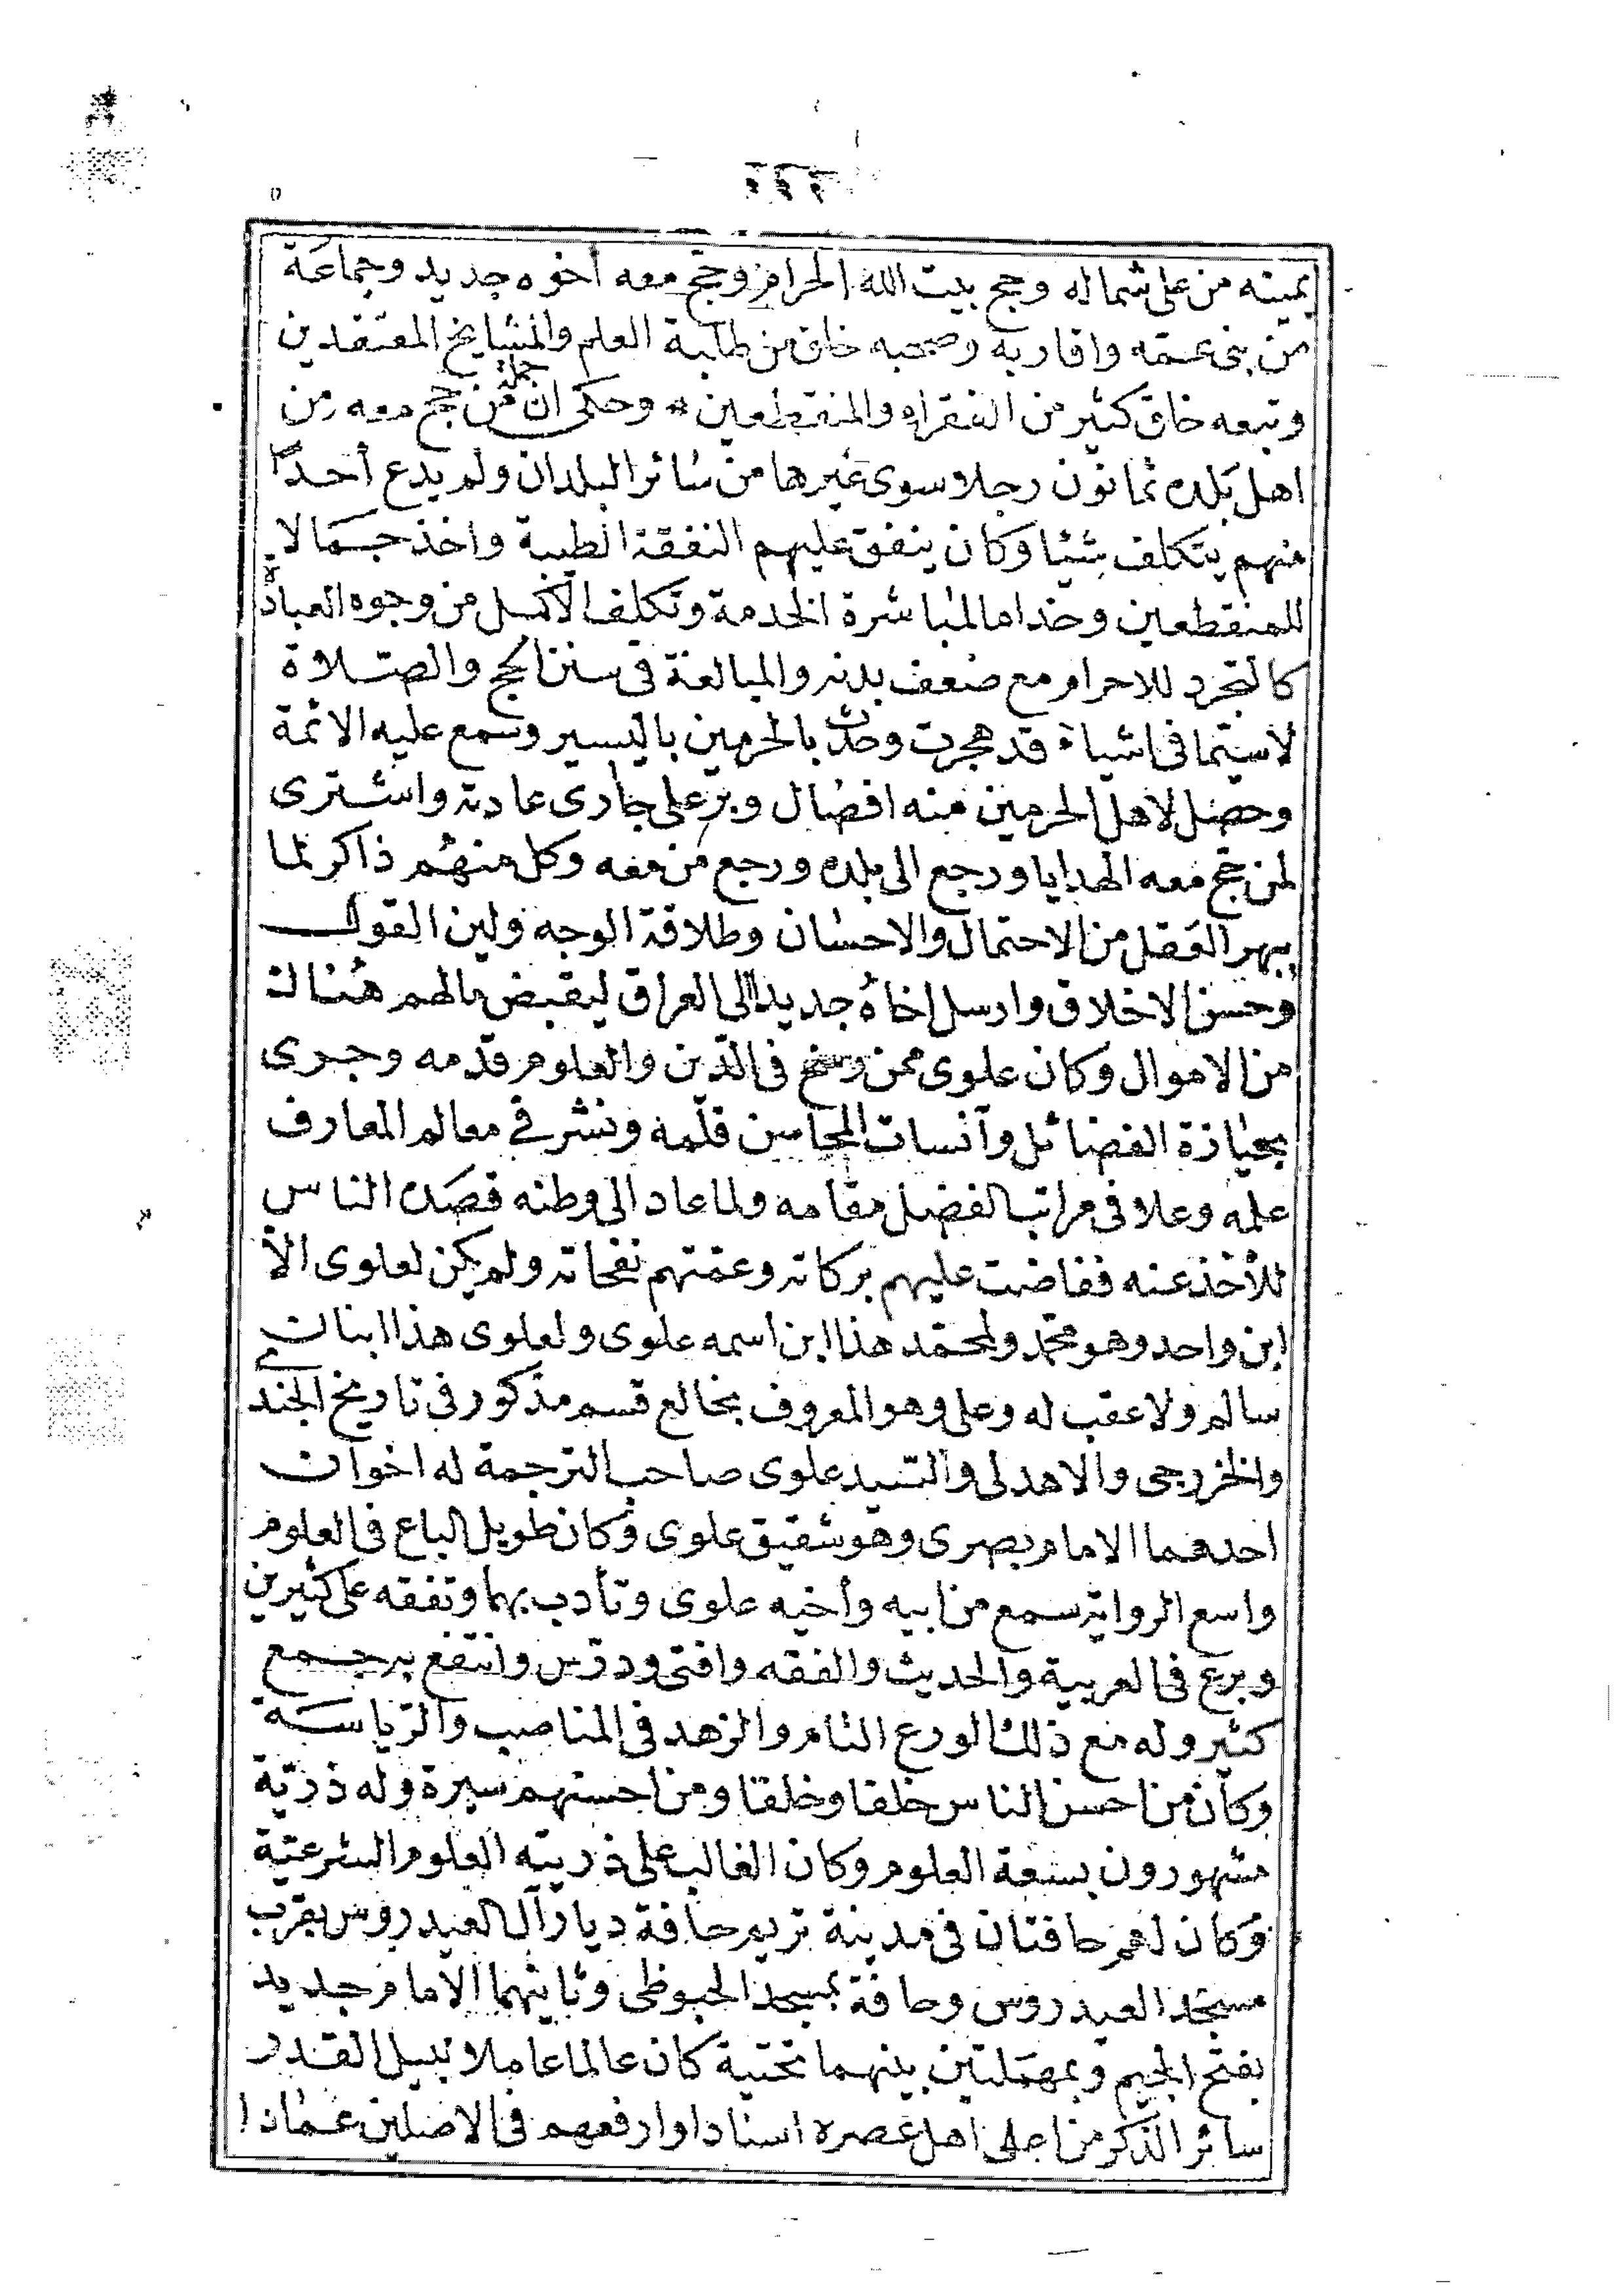 يمينه من على شماله وحج بيت الله الحرام وحج معه أخوه جديد وجماعة
من بنى عمه واقاربه وصحبه خلق من طلبة العلم والمشايخ المعتقدين
وتبعه خلق كثير من الفقراء والمنقطعين * وحكى ان جملة من حج معه من
اهل بلده ثمانون رجلا وسوى غيرها من سائر البلدان ولم يدع أحدا
منهم يتكلف شيئا وكان ينفق عليهم النفقة الطيبة واخذ جمالا
للمنقطعين وخداما لمباشرة الخدمة وتكلف الأكمل من وجوه العبادة
كالتجرد للاحرام مع ضعف بدنه والمبالغة فى سنن الحج والصلاة
لاسيما فى اشياء قد هجرت وحدث بالحرمين باليسير وسمع عليه الائمة
وحصل لاهل الحرمين منه افضال وبر على جارى عادته واشترى
لمن حج معه الهدايا ورجع الى بلده ورجع من معه وكل منهم ذاكر لما
يبهر العقل من الاحتمال والاحسان وطلاقة الوجه ولين القول
وحسن الاخلاق وارسل اخاه جديدا الى العراق ليقبض مالهم هناك
من الاموال وكان علوى ممن رسخ فى الدين والعلوم قدمه وجرى
بحيازة الفضائل وآنسات المحاسن قلمه ونشر في معالم المعارف
علمه وعلا فى مراتب الفضل مقامه ولما عاد الى وطنه قصده الناس
للأخذ عنه ففاضت عليهم بركاته وعمتهم نفحاته ولم يكن لعلوى الا
ابن واحد وهو محمد ولمحمد هذا ابن اسمه علوى ولعلوى هذا ابنان
سالم ولا عقب له وعلى وهو المعروف بخالع قسم مذكور فى تاريخ الجندى
والخزرجى والاهدلى والسيد علوى صاحب الترجمة له اخوان
احدهما الامام بصرى وهو شقيق علوى وكان طويل الباع فى العلوم
واسع الرواية سمع من ابيه وأخيه علوى وتأدب بهما وتفقه على كثيرين
وبرع فى العربية والحديث والفقه وافتى ودرس وانتفع به جمع
كثير وله مع ذلك الورع التام والزهد فى المناصب والرياسة
وكان من احسن الناس خلقا وخلقا ومن احسنهم سيرة وله ذرية
مشهورون بسعة العلوم وكان الغالب على ذريته العلوم الشرعية
وكان لهم حافتان فى مدينة تريم حافة ديار آل العيدروس بقرب
مسجد العيدروس وحافة بمسجد الحبوظى وثانيهما الامام جديد
بفتح الجيم وبمهملتين بينهما تحتية كان عالما عاملا نبيل القدر
سائر الذكر من اجلى اهل عصره اسنادا وارفعهم فى الاصلين عمادا